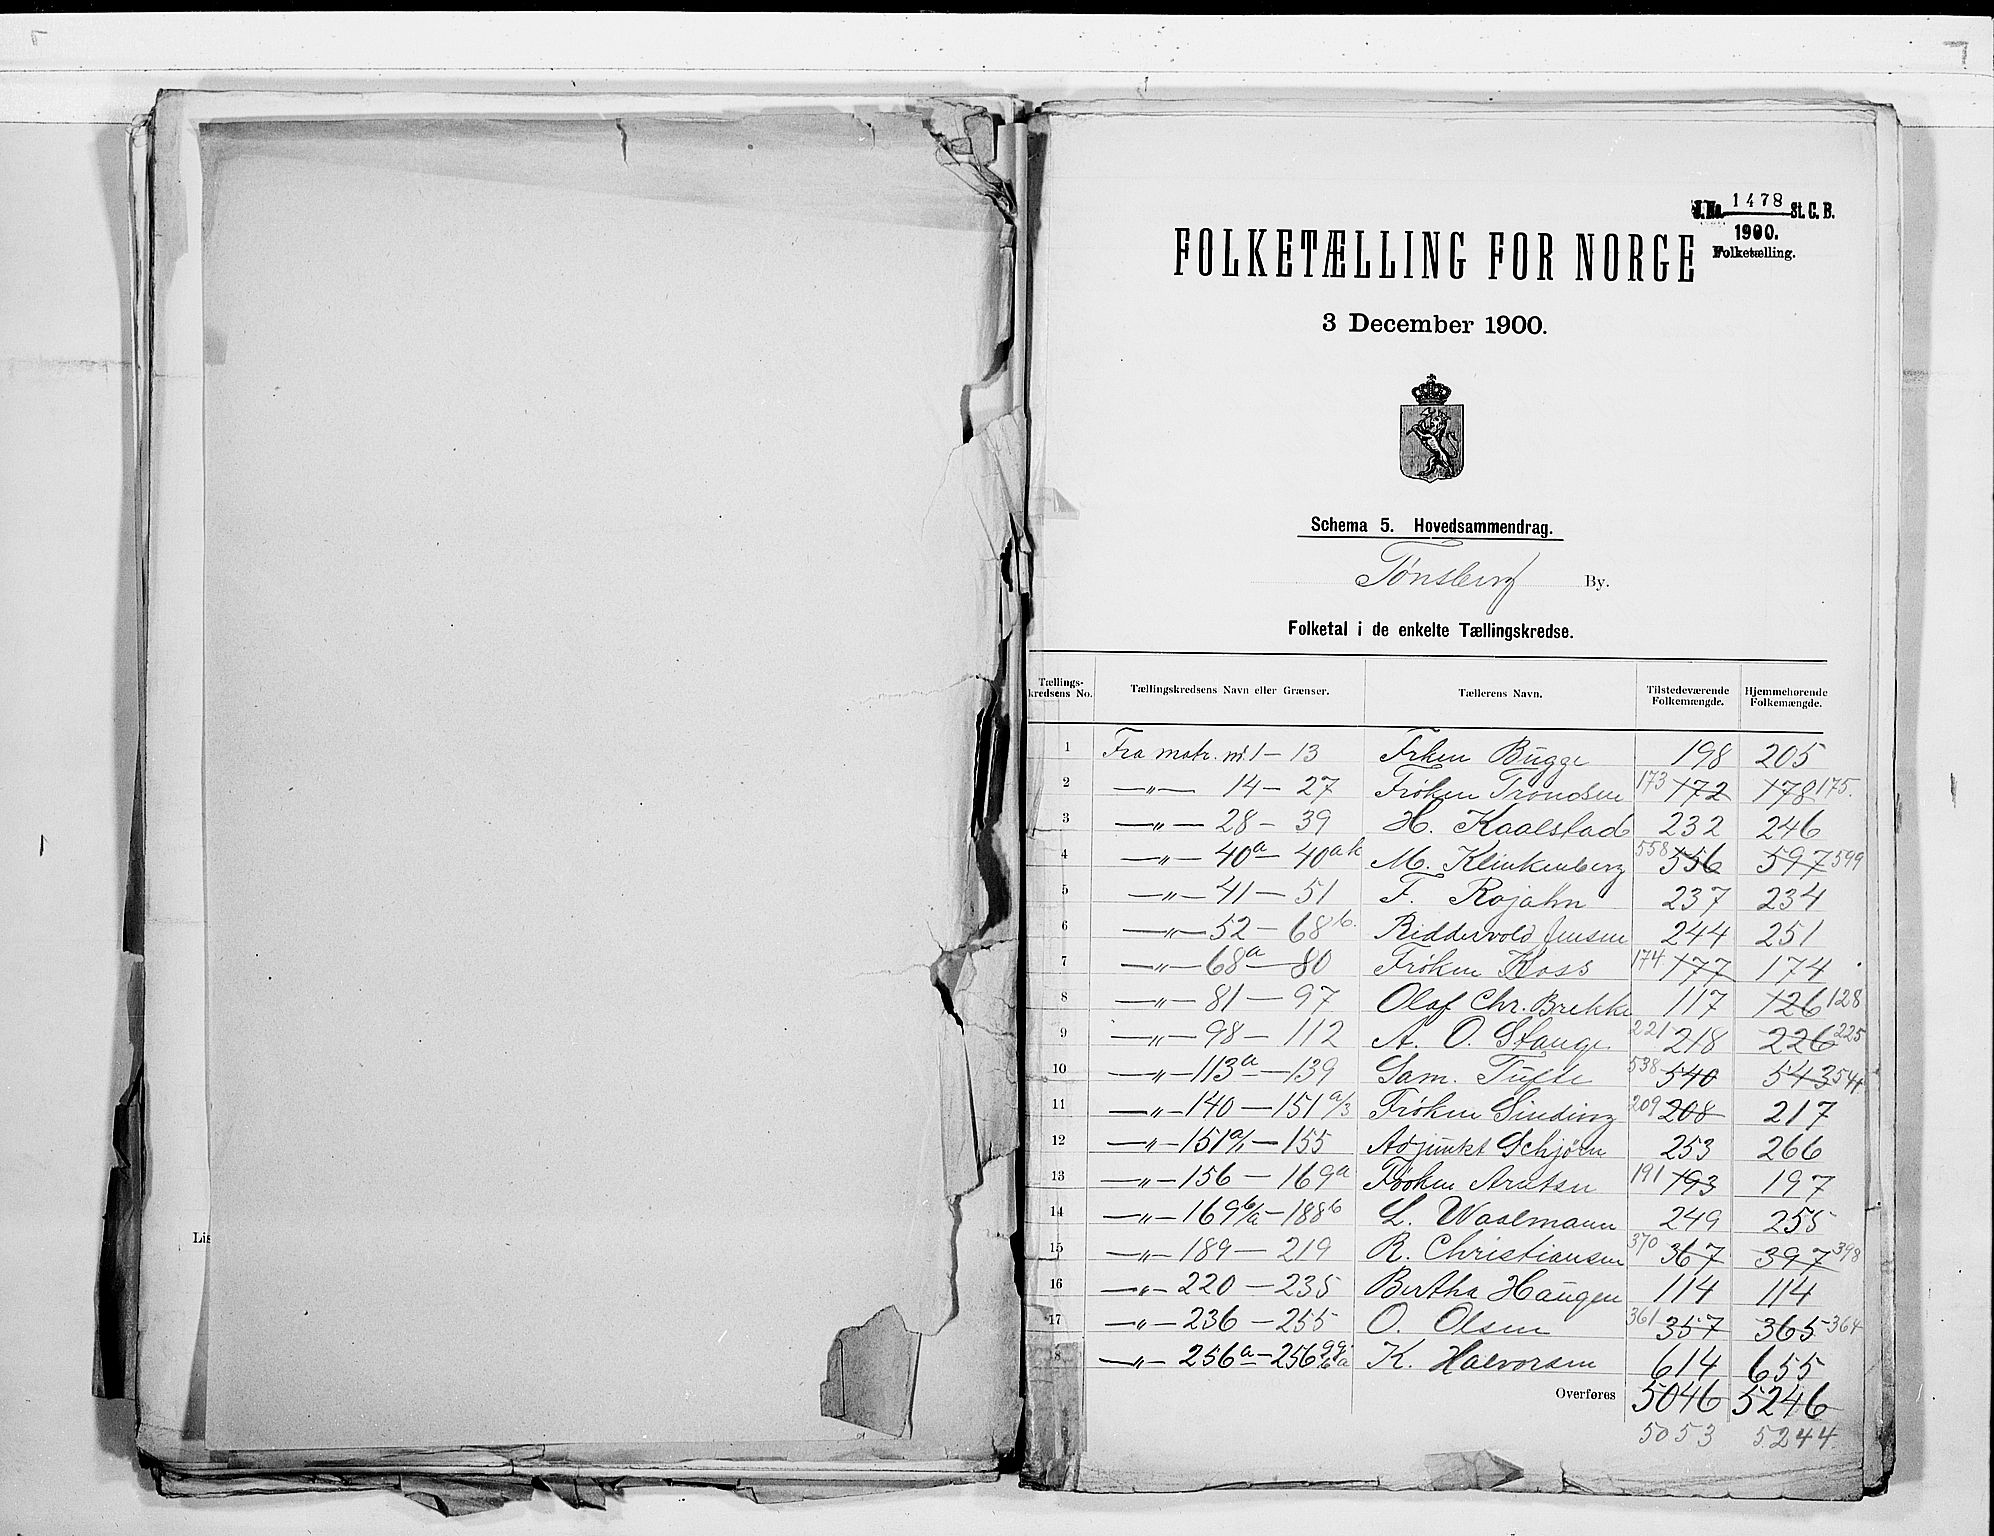 Lis
J. No. 1478 St. C. B.
1900.
Folketælling.
FOLKETÆLLING FOR NORGE
3 December 1900.
Schema 5. Hovedsammendrag.
Tønsberg By.
Folketal i de enkelte Tællingskredse.
Tællings-kredsens No. Tællingskredsens Navn eller Grænser. Tællerens Navn. Tilstedeværende Folkemængde. Hjemmehørende Folkemængde.
1 Fra matr. nr. 1 — 13 Frken Bugge 198 205
2 —„— 14 — 27 Frøken Trondsen 173 172 178 175.
3 —„— 28 — 39 H. Kaalstad 232 246
4 —„— 40a — 40ak M. Klinkenberg 558 556 597 599
5 —„— 41 — 51 F. Rojahn 237 234
6 —„— 52 — 68b. Riddervold Jensen 244 251
7 —„— 68a — 80 Frøken Koss 174 177 174
8 —„— 81 — 97 Olaf Chr. Brekke 117 126 128
9 —„— 98 — 112 A. O. Stange 221 218 226 225
10 —„— 113a — 139 Sam. Tufte 538 540 543 541
11 —„— 140 — 151a/3 Frøken Sinding 209 208 217
12 —„— 151a/1 — 155 Adjunkt Schjørn 253 266
13 —„— 156 — 169a Frøken Arntsen 191 193 197
14 —„— 169b/a — 188b L. Waalmann 249 255
15 —„— 189 — 219 R. Christiansen 370 367 397 398
16 —„— 220 — 235 Bertha Haugen 114 114
17 —„— 236 — 255 O. Olsen 361 357 365 364
8 —„— 256a — 256 K. Halvorsen 614 655
Overføres 5046 5246
5053 5244